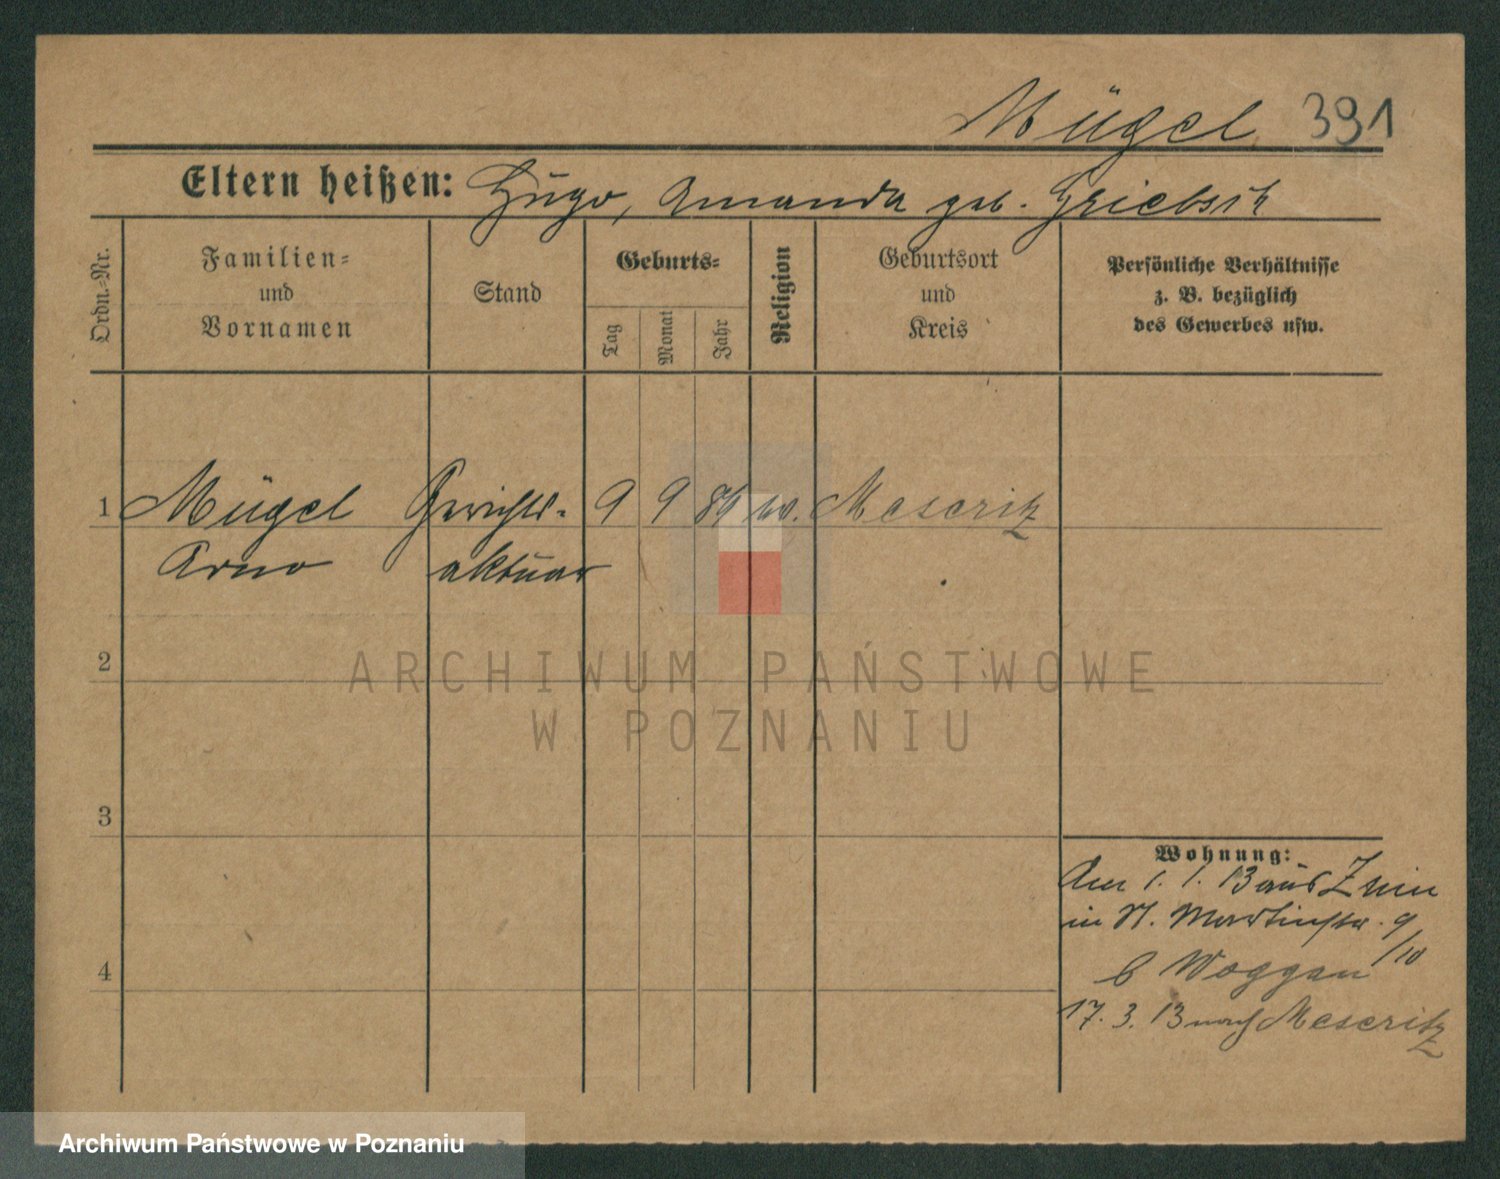 Mügel 391
Eltern heißen: Hugo, Amanda geb. Griebsch
Ordn.-Nr.
Familien-
und
Vornamen
Stand
Geburts-
Tag
Monat
Jahr
Religion
Geburtsort
und
Kreis
Persönliche Verhältnisse
z. B. bezüglich
des Gewerbes usw.
1 Mügel Gerichts- 9 9 86 Meseritz
Arno aktuar
2
3
4
Wohnung:
Am 1. 1. 13 aus Znin
in St. Martinstr. 9/10
b Woggan
17. 3. 13 nach Meseritz
ARCHIWUM PAŃSTWOWE
W POZNANIU
Archiwum Państwowe w Poznaniu